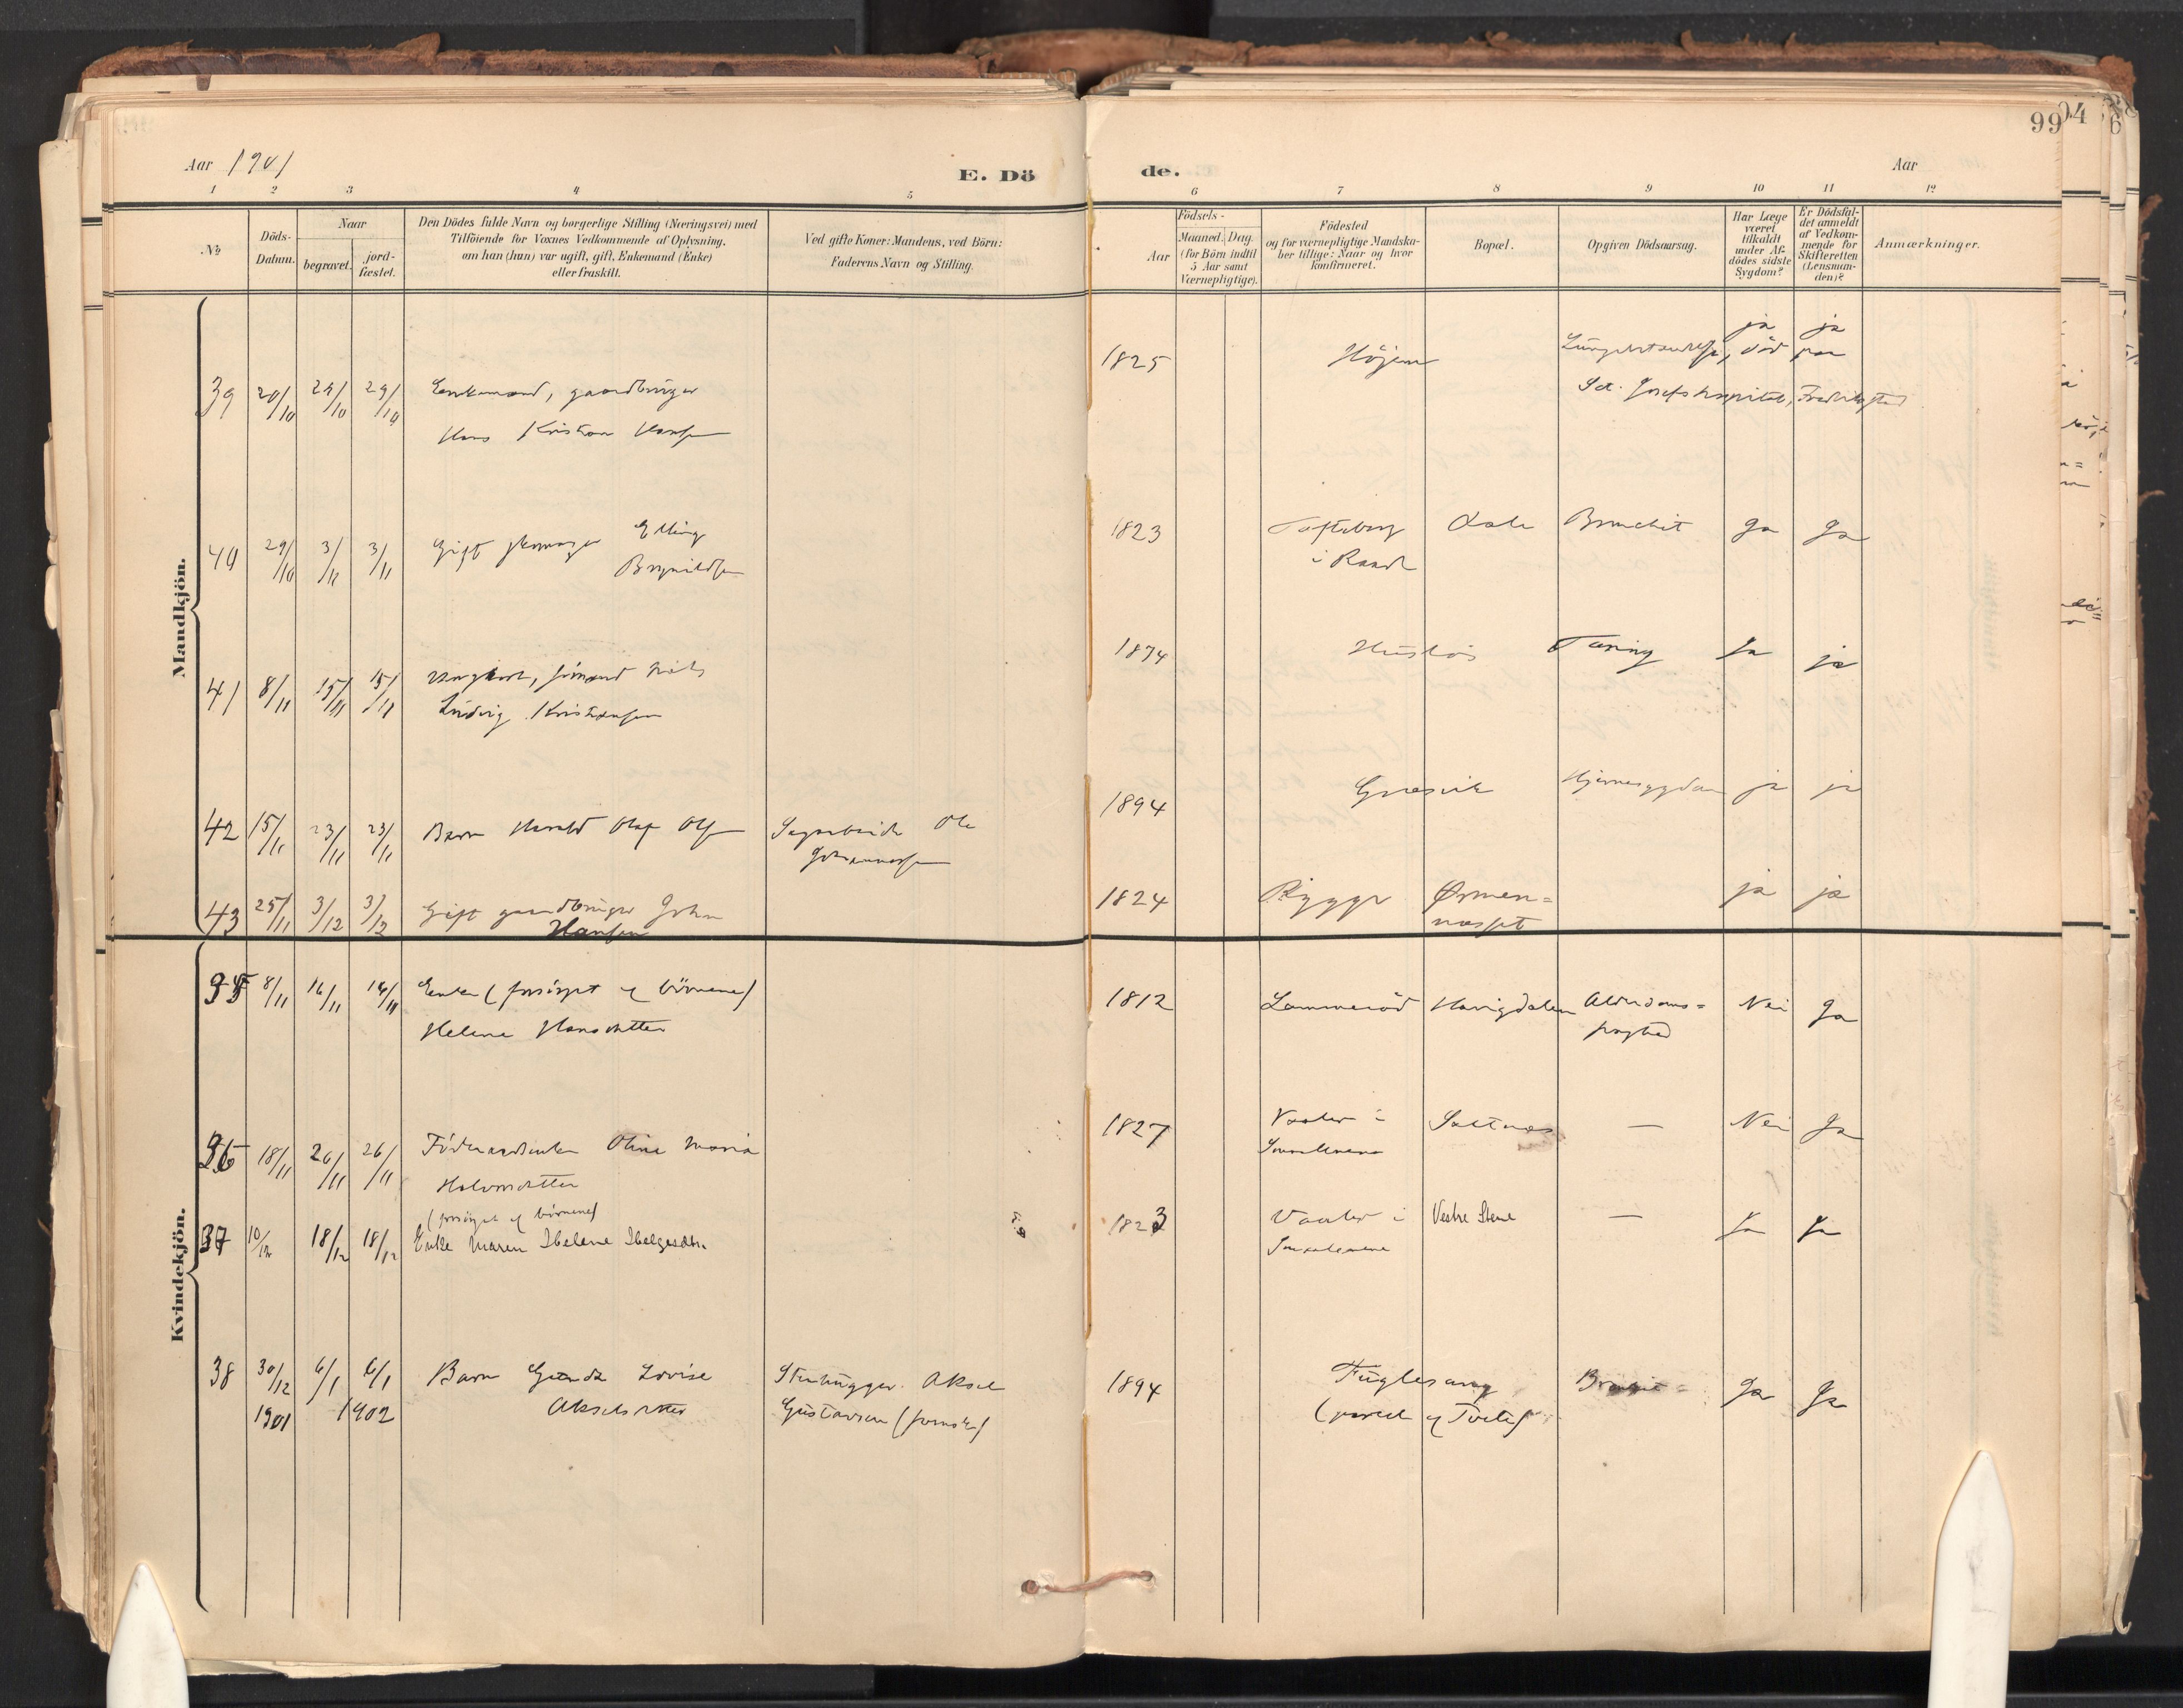 99
Aar 1901
E. Dö
de.
Aar
1 2 3 4 5 6 7 8 9 10 11 12
№
Döds-Datum.
Naar
begravet.
jord-fæstet.
Den Dödes fulde Navn og borgerlige Stilling (Næringsvei) med
Tilföiende for Voxnes Vedkommende af Oplysning,
om han (hun) var ugift, gift, Enkemand (Enke)
eller fraskilt.
Ved gifte Koner: Mandens, ved Börn:
Faderens Navn og Stilling.
Födsels-
Aar
Maaned. Dag.
(for Börn indtil
5 Aar samt
Værnepligtige).
Födested
og for værnepligtige Mandska-
ber tillige: Naar og hvor
konfirmeret.
Bopæl.
Opgiven Dödsaarsag.
Har Læge
været
tilkaldt
under Af-
dödes sidste
Sygdom?
Er Dödsfal-
det anmeldt
af Vedkom-
mende for
Skifteretten
(Lensman-
den)?
Anmærkninger.
Mandkjön.
39 20/10 29/10 29/10 Enkemand, gaardbruger
Hans Kristian Hansen
1825 Höjem Lungebetændelse, död paa ja ja
Sct. Josefs hospital, Fredrikstad
40 29/10 3/11 3/11 Gift Elling
Brynildsen
1823 Tofteberg Dale Bronchit Ja Ja
i Raade
41 8/11 15/11 15/11 Ungkarl, sömand Niels
Ludvig Kristiansen
1874 Tæring Ja ja
42 15/11 23/11 23/11 Barn Harald Olaf Olsen Sagarbeider Ole
Johannessen
1894 Græsvik Hjernesygdom ja ja
43 25/11 3/12 3/12 Gift gaardbruger Johan
Hansen
1824 Rygge Ørmen=
næsset ja ja
Kvindekjön.
35 8/11 16/11 16/11 Enke (forsörget af börnene)
Helene Hansdatter
1812 Lammeröd Haugdalen Alderdoms=
svaghed Nei Ja
36 18/11 26/11 26/11 Föderaadsenke Oline Maria
Halvorsdatter
1827 Vaaler i Saltnes — Nei Ja
Smaalenene
37 10/12 18/12 18/12 (forsörget af börnene)
Enke Maren Helene Helgesdtr.
1823 Vaaler i Vestre Stene — Ja Ja
Smaalenene
38 30/12 6/1 6/1 Barn Gunda Lovise Stenhugger Aksel
1901 1902 Akselsdatter Gustavsen (svensk)
1894 Fuglesang Ja Ja
(parcel af Tvete)